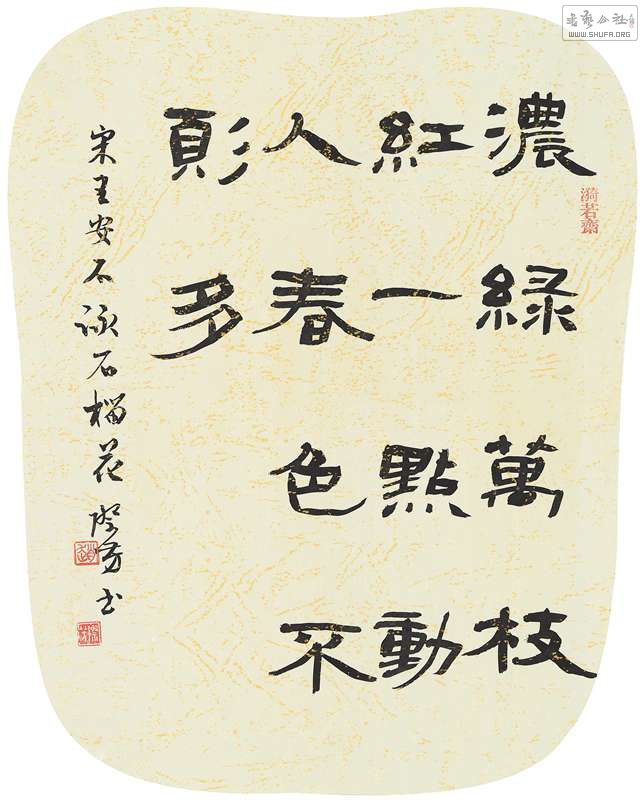 書藝公社
WWW.SHUFA.ORG
濃緑萬枝
漪若齋
紅一點動
人春色不
須多
宋王安石詠石榴花
书